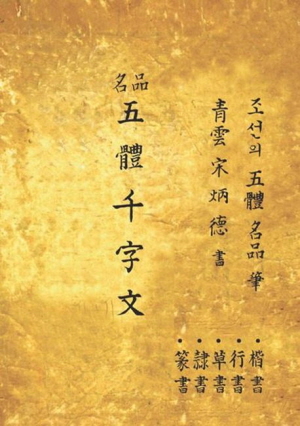 조선의 五體 名品 筆
青雲 宋炳德 書
名品
五體千字文
• 楷書
• 行書
• 草書
• 隷書
• 篆書